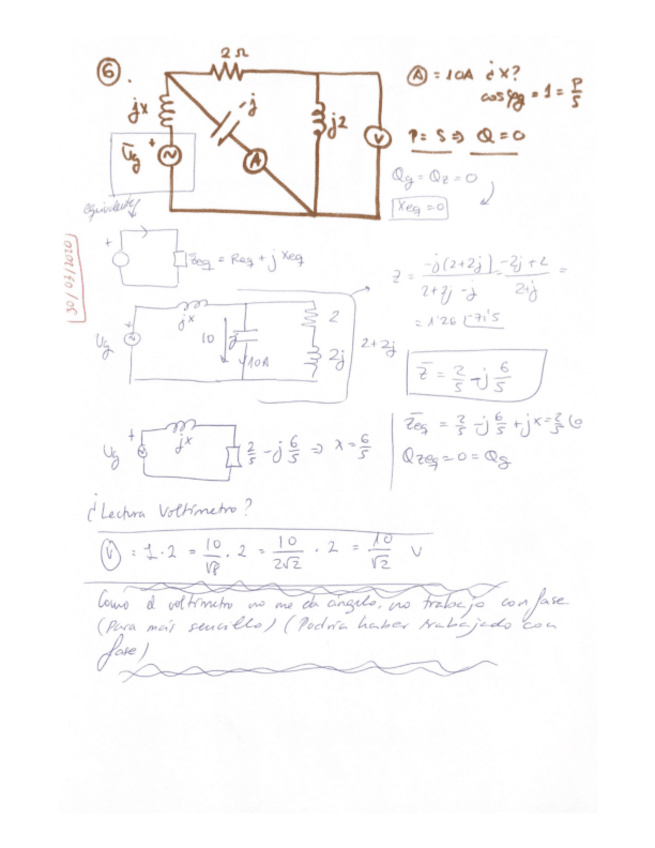 6.
2 Ω
A = 10A ¿x?
cos φg = 1 = P/S
jx
-j
j2
V
A
Ūg
+
P = S => Q = 0
Qg = Qz = 0
Xeq = 0
equivalente
+
Z̄eq = Req + j Xeq
30/03/2020
Z = -j(2+2j)/2+2j-j = -2j+2/2+j =
= 1'26 ∟-71'5
jx
+
Ug
10
10A
2
2j
2+2j
Z̄ = 2/5 - j 6/5
Z̄eq = 2/5 - j 6/5 + jx = 2/5
Qzeq = 0 = Qg
+
Ug
jx
2/5 - j 6/5 => x = 6/5
¿Lectura Voltímetro?
V = I · 2 = 10/√8 · 2 = 10/2√2 · 2 = 10/√2 V
Como el voltímetro no me da ángulo, no trabajo con fase
(Para más sencillo) (Podría haber trabajado con
fase)